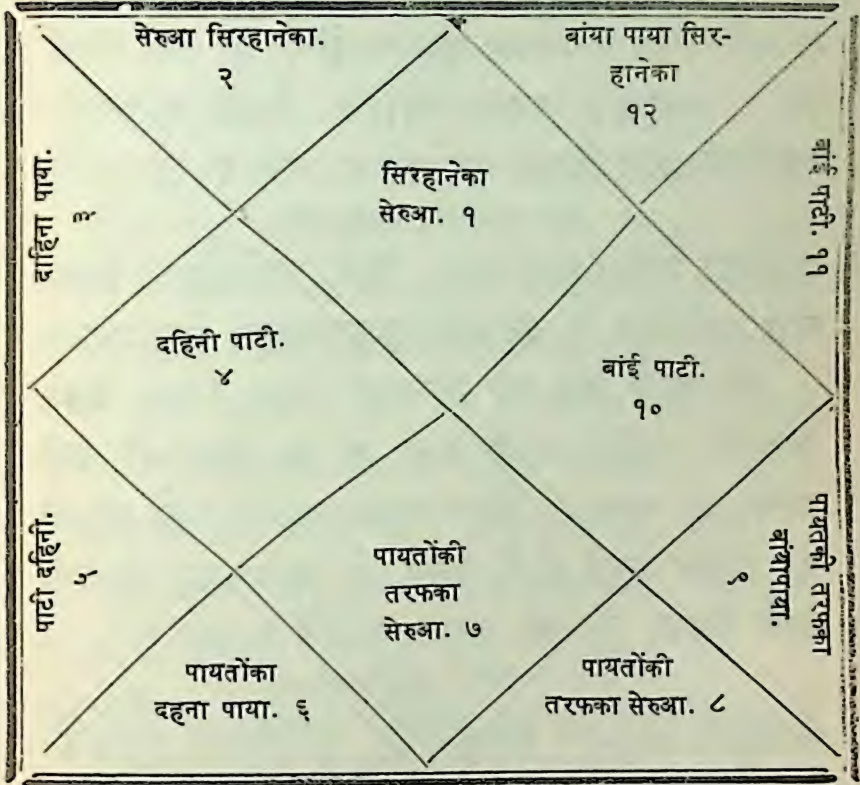 सेरुआ सिरहानेका.
२
बांया पाया सिर-
हानेका
१२
सिरहानेका
सेरुआ. १
दाहिना पाया.
३
बांई पाटी. ११
दहिनी पाटी.
४
बांई पाटी.
१०
पाटी दहिनी.
५
पायतोंकी
तरफका
सेरुआ. ७
पायतकी तरफका
बांयापाया.
९
पायतोंका
दहना पाया. ६
पायतोंकी
तरफका सेरुआ. ८